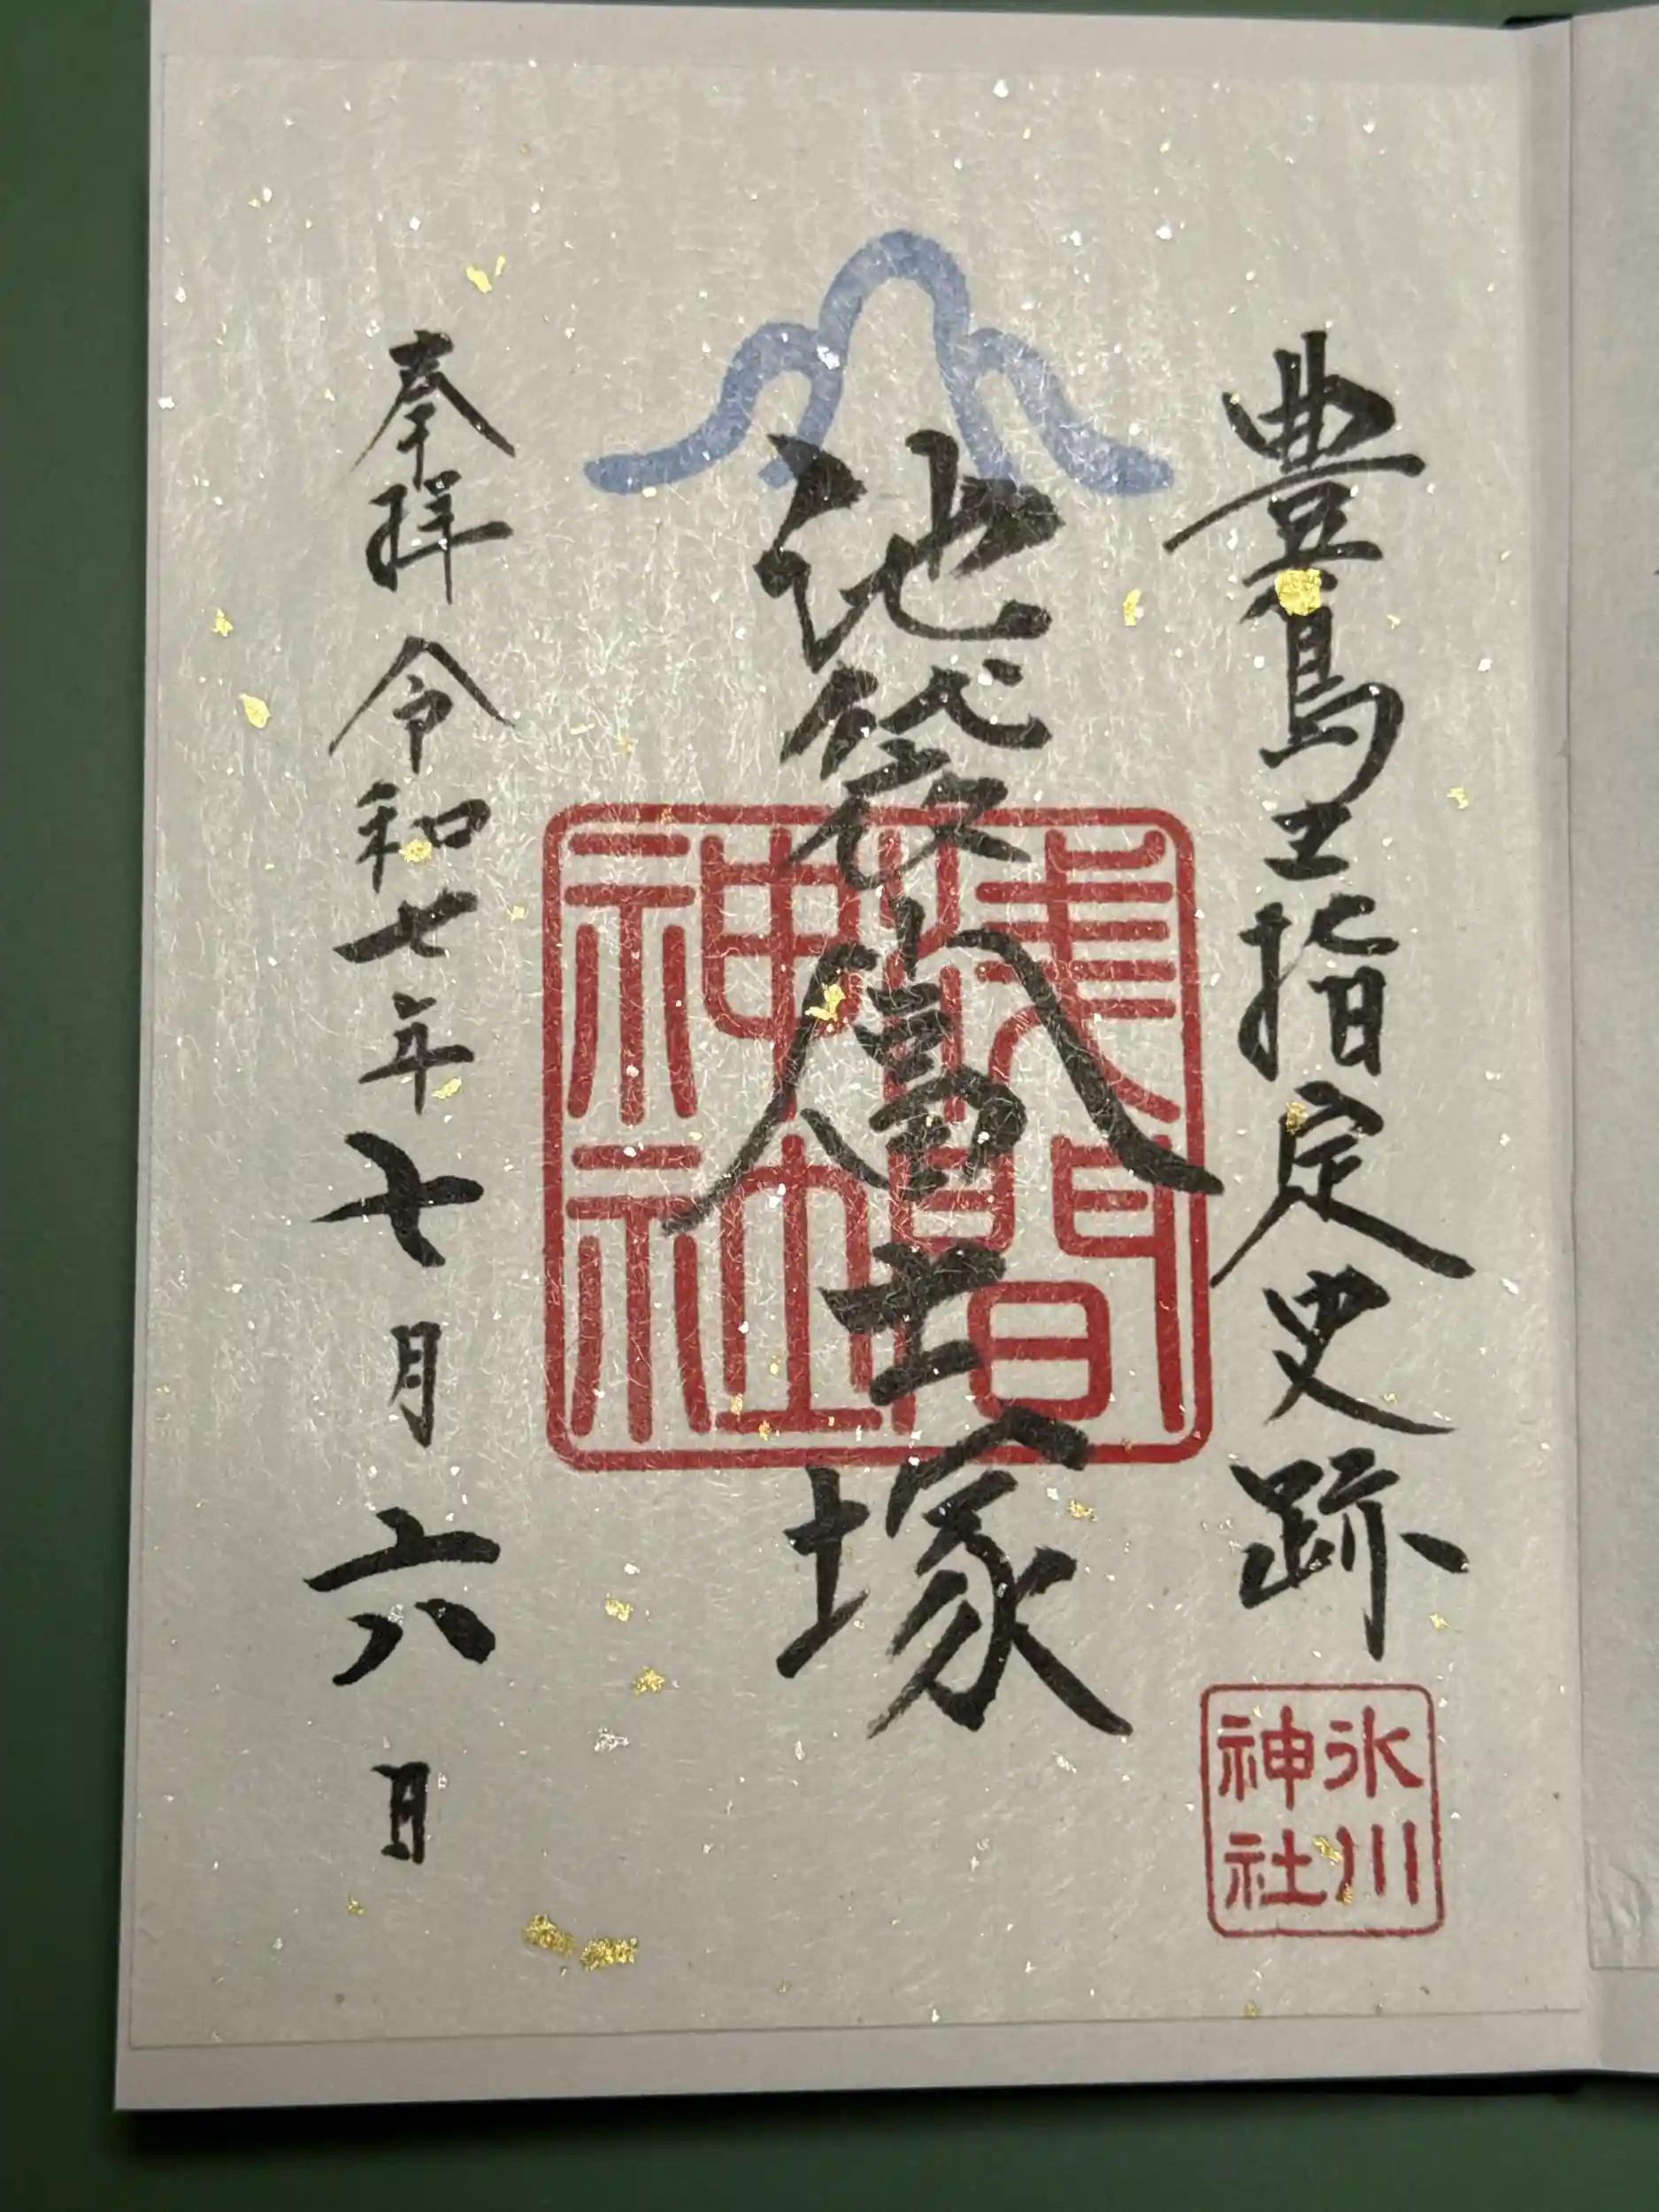 豊島区指定史跡
氷川神社
池袋富士塚
浅間神社
奉拝 令和七年七月六日